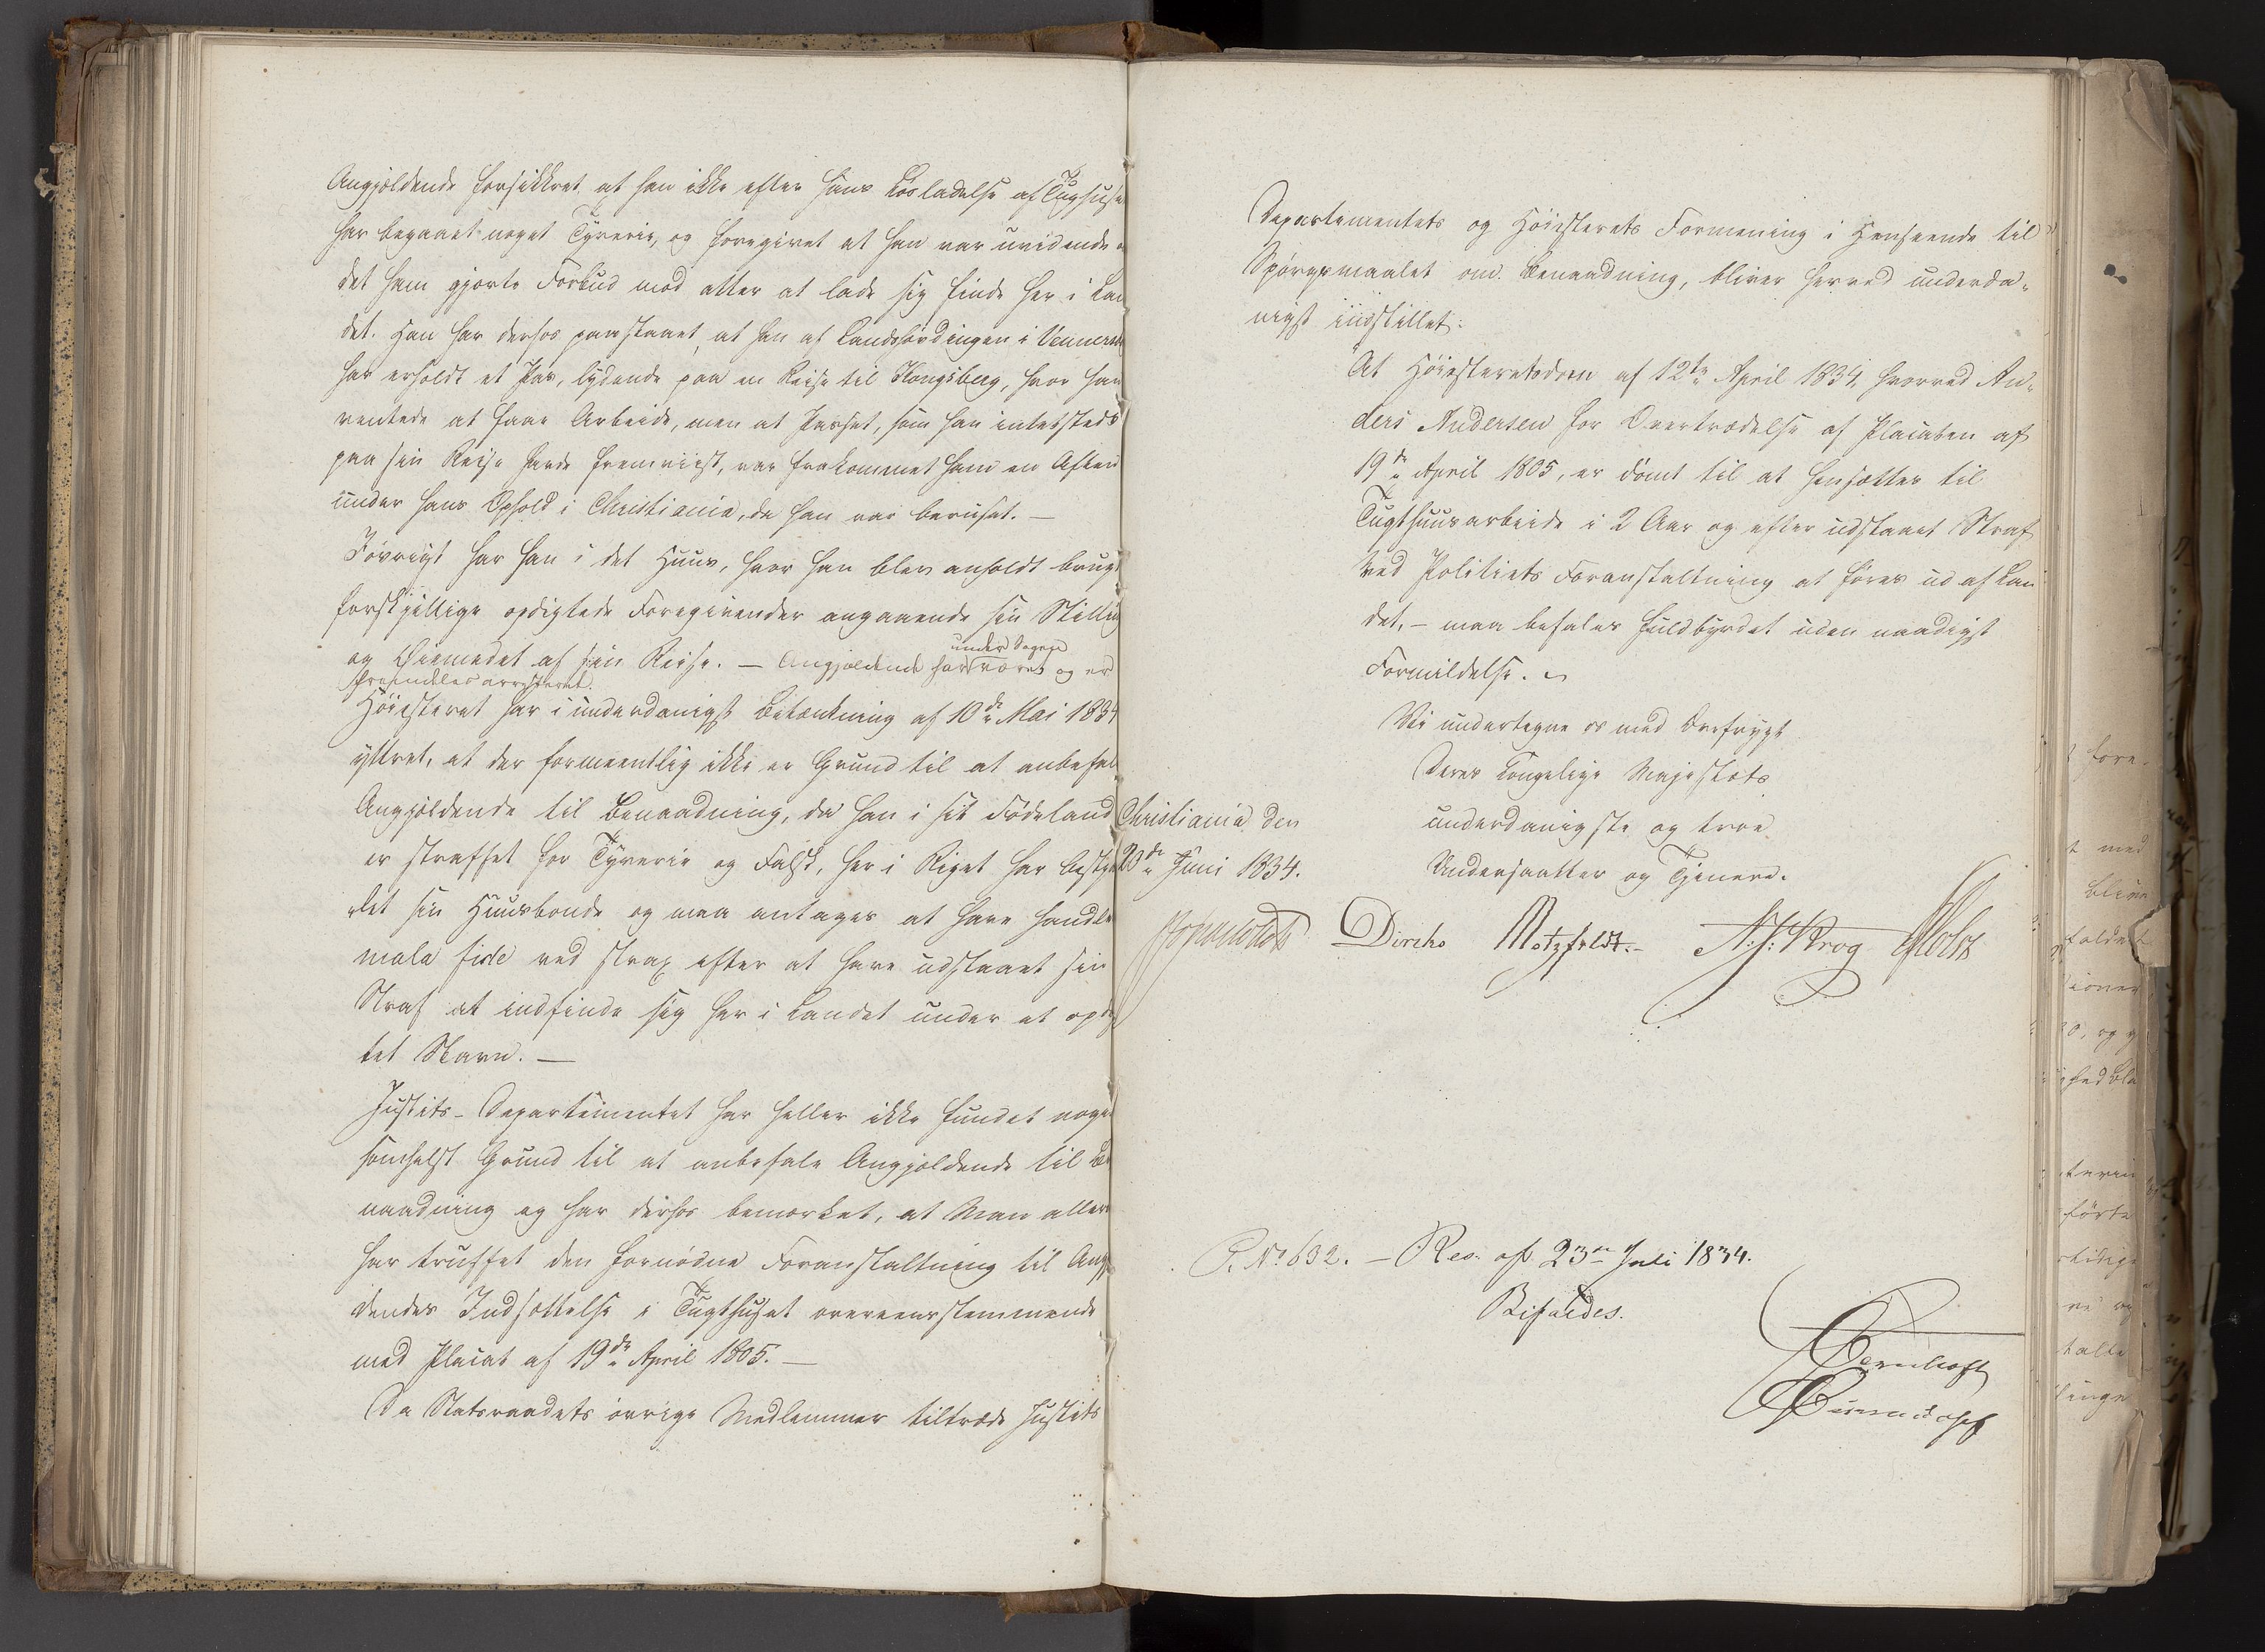 Angjældende forsikkret, at han ikke efter hans Løsladelse af Tugthuse
har begaaet noget Tyverie, og foregivet at han var uvidende o
det ham gjorte Forbud mod atter at lade sig finde her i Lan
det. Han har derhos paastaaet, at han af Landshövdingen i Wenners
har erholdt et Pas, lydende paa en Reise til Kongsberg, hvor han
ventede at faae Arbeide, men at Passet, som han intetsteds
paa sin Reise havde fremviist, var frakommet ham en Aften
under hans Ophold i Christiania, da han var beruset. —
Iøvrigt har han i det Huus, hvor han blev anholdt brugt
forskjellige opdigtede Foregivender angaaende sin Stilling
og Øiemedet af sin Reise. — Angjældende har under Sagen været og er
fremdeles arresteret.
Høiesteret har i underdanigst Betænkning af 10de Mai 1834
yttret, at der formeentlig ikke er Grund til at anbefal
Angjældende til Benaadning, da han i sit Fødeland
er straffet for Tyverie og Falsk, her i Riget har bestjaa
let sin Huusbonde og maa antages at have handle
mala fide ved strax efter at have udstaaet sin
Straf at indfinde sig her i Landet under et opdig
tet Navn. —
Justits-Departementet har heller ikke fundet noge
somhelst Grund til at anbefale Angjældende til Be
naadning og har derhos bemærket, at Man aller
har truffet den fornødne Foranstaltning til Angj
dendes Indsættelse i Tugthuset overeensstemmende
med Placat af 19de April 1805. —
Da Statsraadets øvrige Medlemmer tiltræde Justits
Departementets og Høiesterets Formening i Henseende til
Spørgsmaalet om Benaadning, bliver herved underda-
nigst indstillet:
"At Høiesteretsdom af 12te April 1834, hvorved An-
ders Andersen for Overtrædelse af Placaten af
19de April 1805, er dømt til at hensættes til
Tugthuusarbeide i 2 Aar og efter udstaaet Straf
ved Politiets Foranstaltning at føres ud af Lan
det, — maa befales fuldbyrdet uden naadigst
Formildelse.
Vi undertegne os med Ærefrygt
Deres Kongelige Majestæts
underdanigste og troe
Undersaatter og Tjenere.
Christiania den
20de Juni 1834.
Diriks Motzfeldt. N. J. Krog Holst
P. No 632. — Res. af 23de Juli 1834.
Bifaldes.